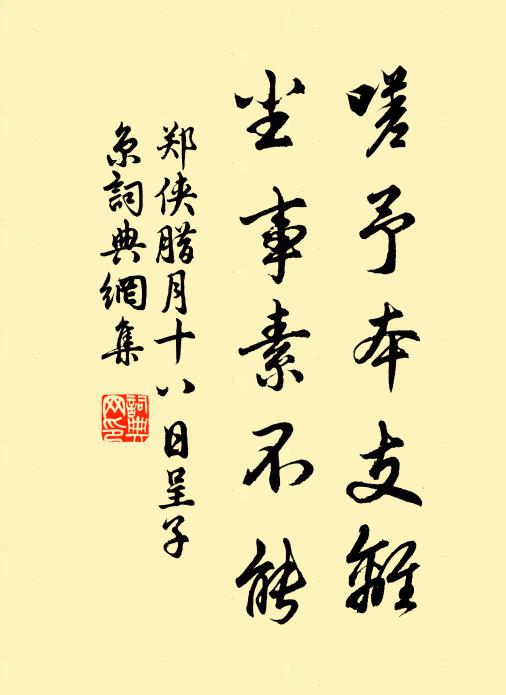 嗟予本支離
尘事素不能
郑侠腊月十八日呈子
京詞典網集
詞典网印